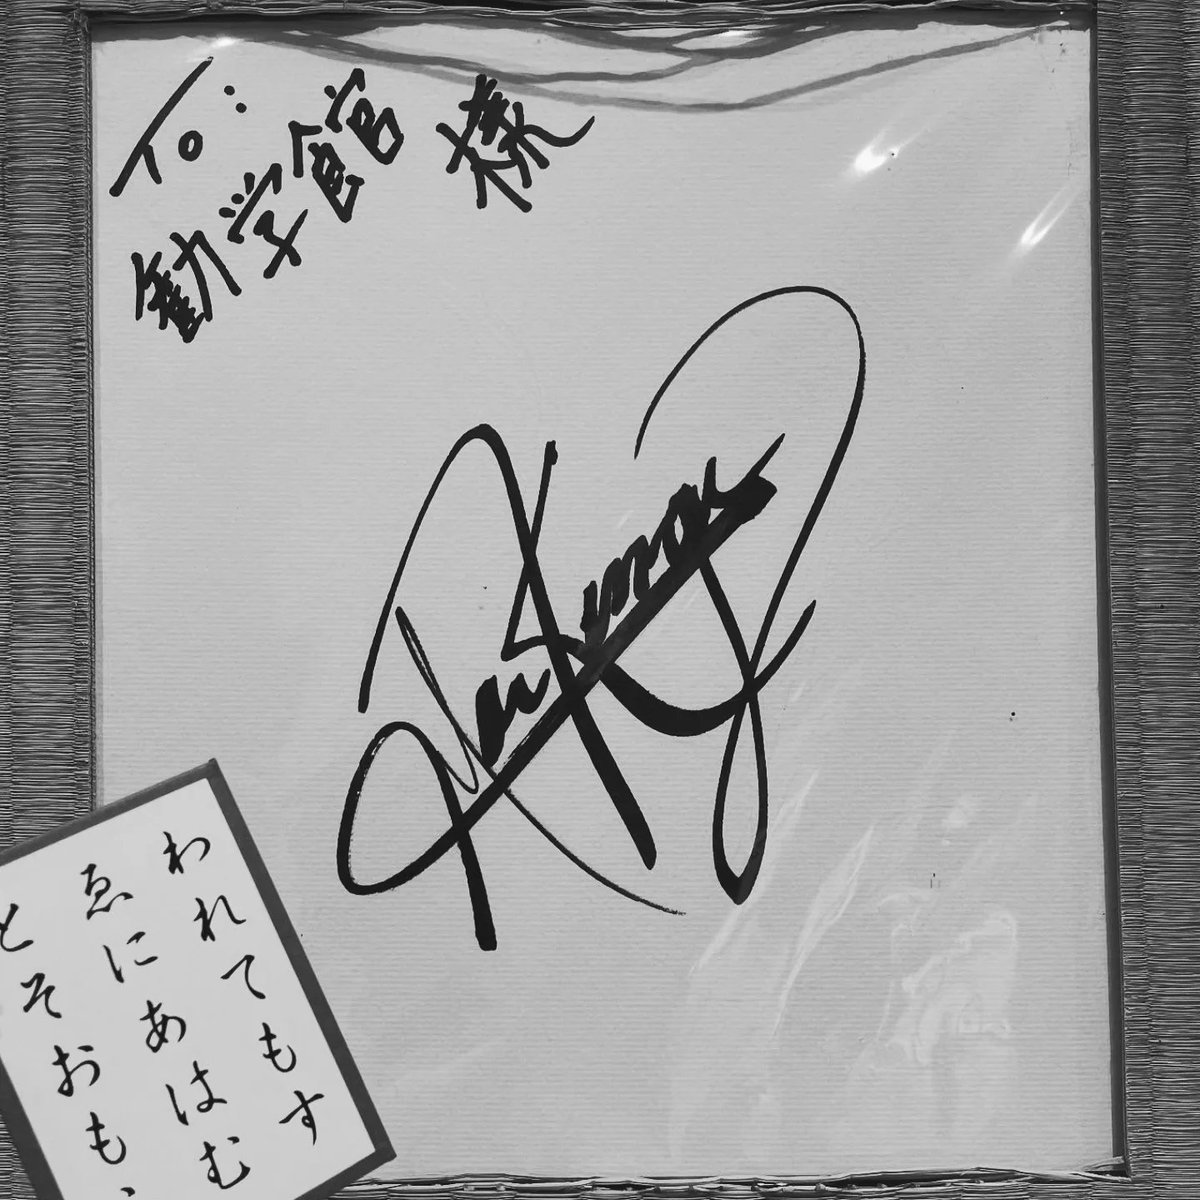 To:
勧学館 様
われてもす
ゑにあはむ
とそおも